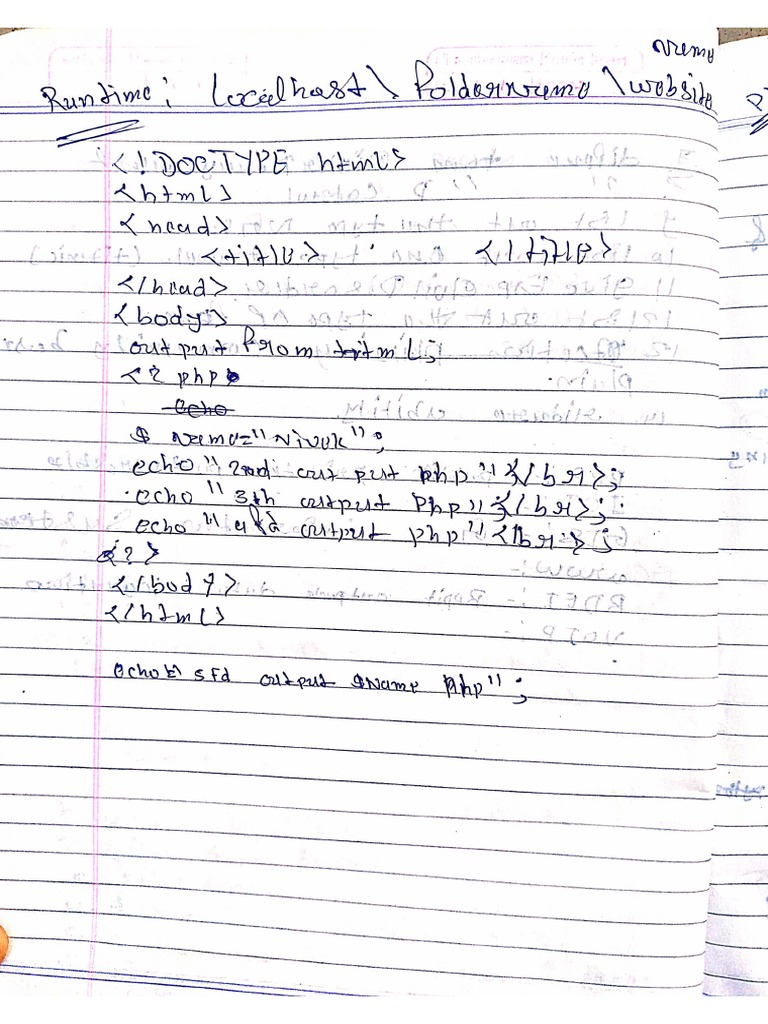 name
Runtime: localhost\ foldername \website
<!DOCTYPE html>
<html>
<head>
<title> </title>
</head>
<body>
output from html;
<? php
echo
$ name="vivek";
echo "2nd out put php" </br>;
echo "3th output php" </br>;
echo "output php" </br>;
<?>
</body>
</html>
echo" sfd output $Name php";